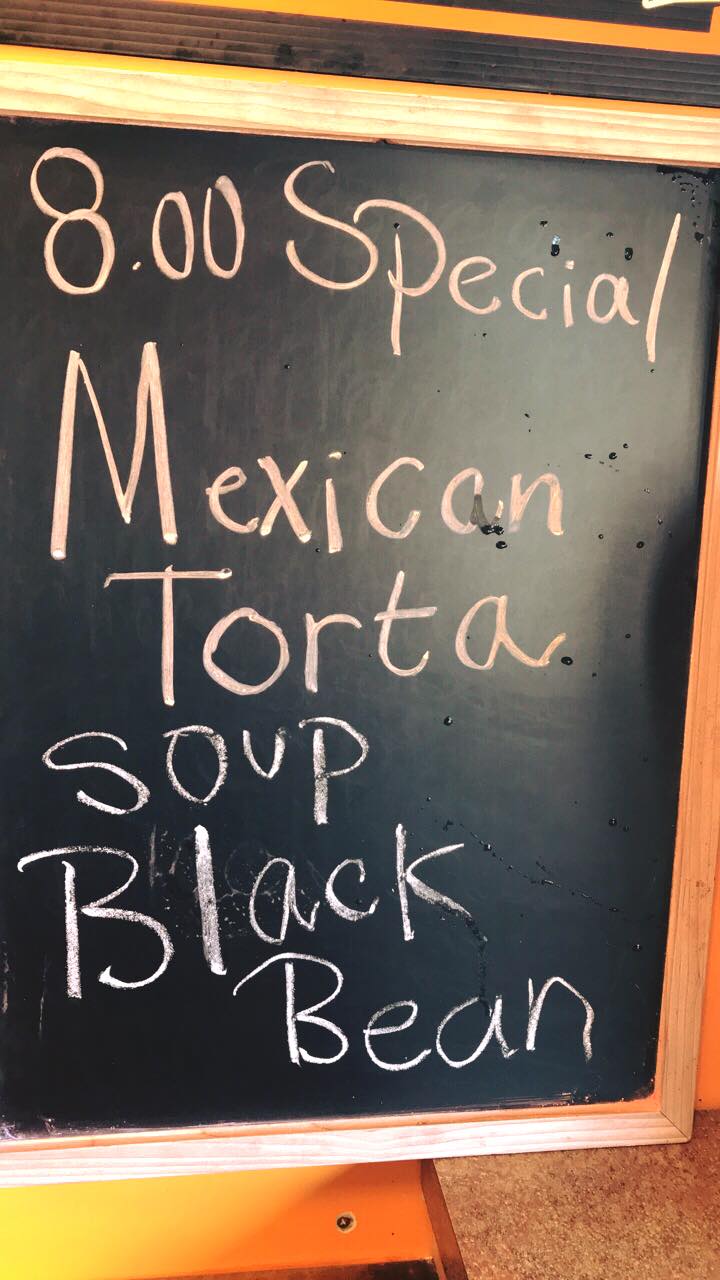 8.00 Special
Mexican
Torta
soup
Black
Bean